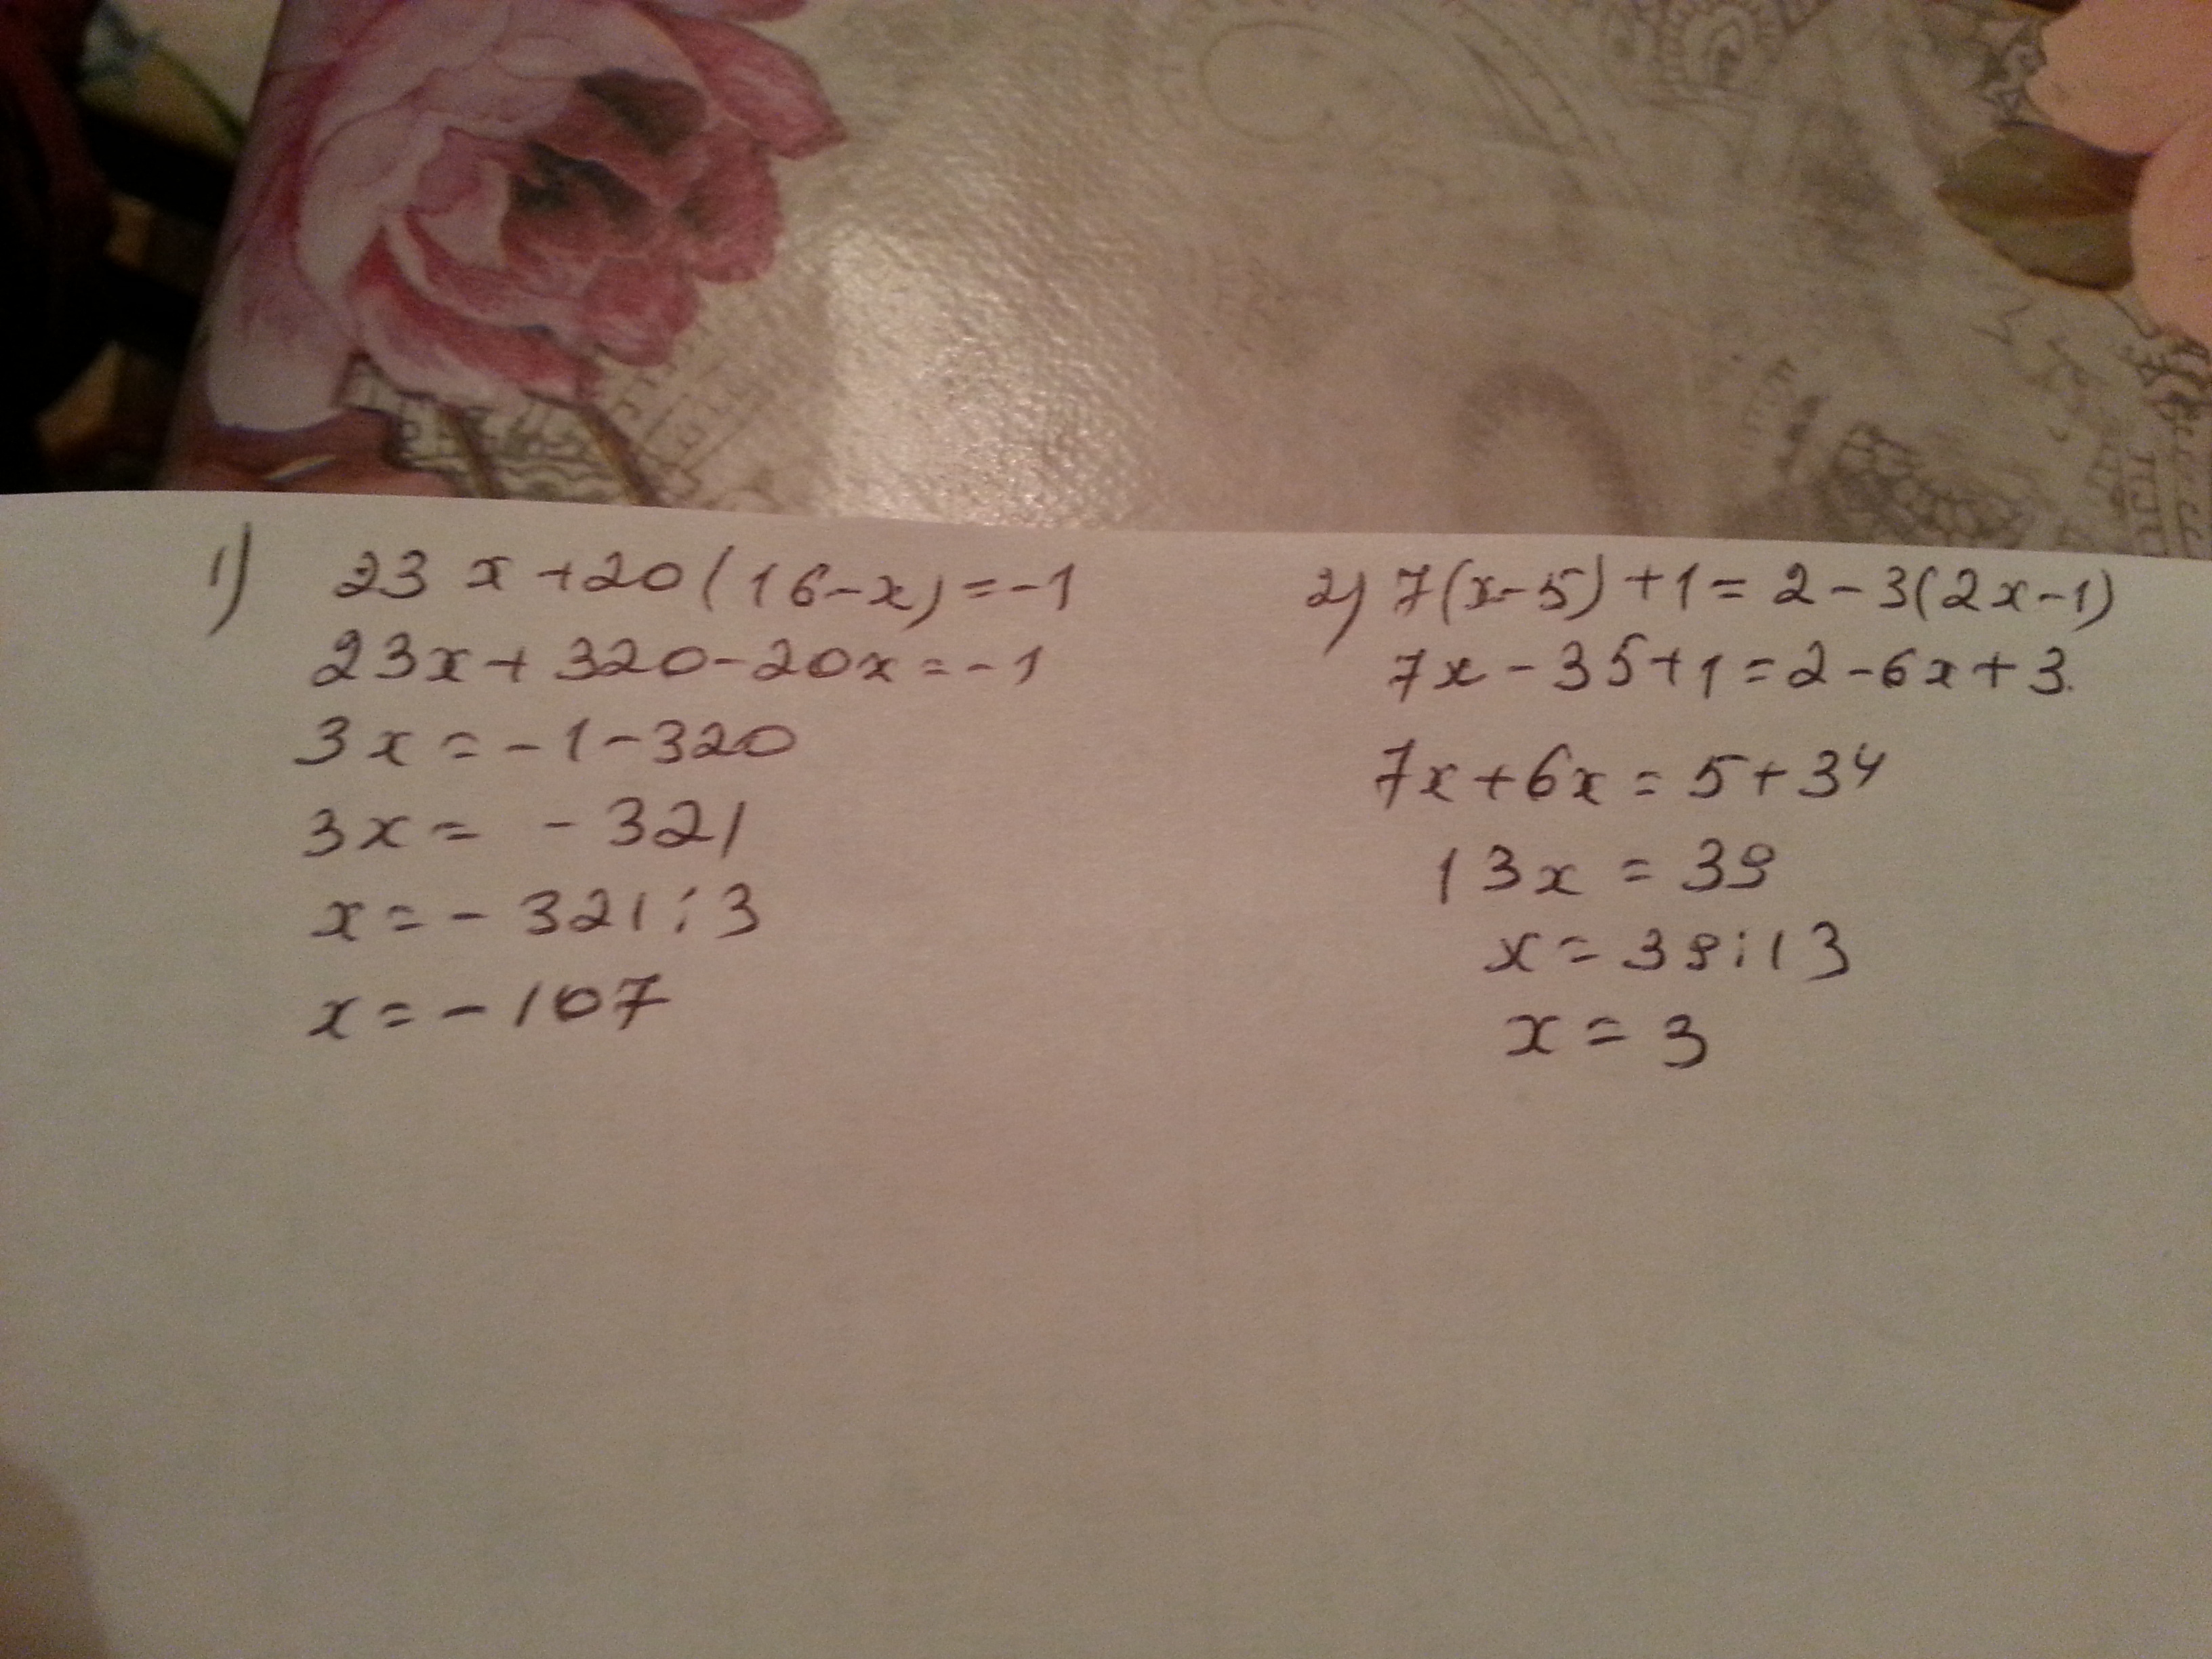 1) 23 x + 20 ( 16 - x ) = - 1
23x + 320 - 20x = - 1
3x = - 1 - 320
3x = - 321
x = - 321 : 3
x = - 107
2) 7(x - 5) + 1 = 2 - 3(2x - 1)
7x - 35 + 1 = 2 - 6x + 3.
7x + 6x = 5 + 34
13x = 39
x = 39 : 13
x = 3